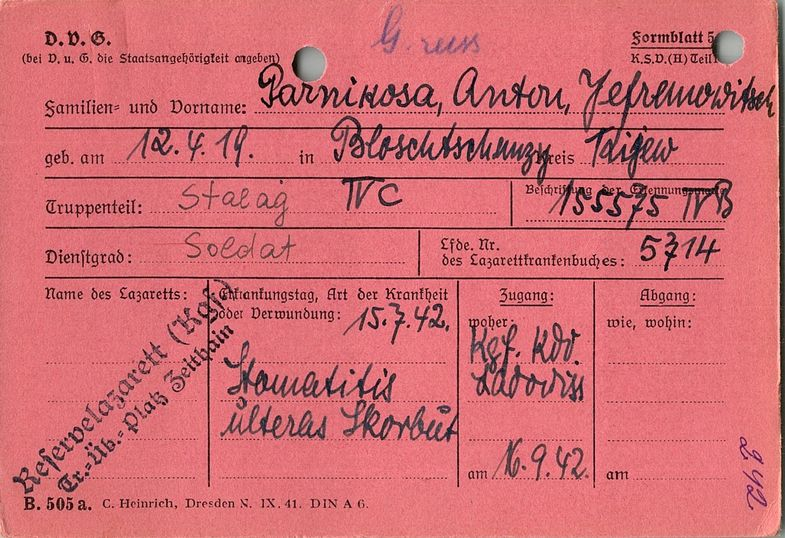 D.V.G.
(bei V. u. G. die Staatsangehörigkeit angeben)
G. russ
Formblatt 5
K.S.D. (H) Teil
Familien- und Vorname: Parnikosa, Anton, Jefremowitsch
geb. am 12.4.19. in Bloschtschanzy Kreis Kijew
Truppenteil: Stalag IV C
Beschriftung der Erkennungsmarke
155575 IV B
Dienstgrad: Soldat
Lfde. Nr.
des Lazarettkrankenbuches: 5714
Name des Lazaretts:
Reservelazarett (Kgf)
Tr.-Üb.-Platz Zeithain
Erkrankungstag, Art der Krankheit
oder Verwundung: 15.7.42.
Stomatitis
ulteras Skorbut
Zugang:
woher:
Kgf. Kdo.
am 16.9.42.
Abgang:
wie, wohin:
am
B. 505a. C. Heinrich, Dresden N. IX. 41. DIN A 6.